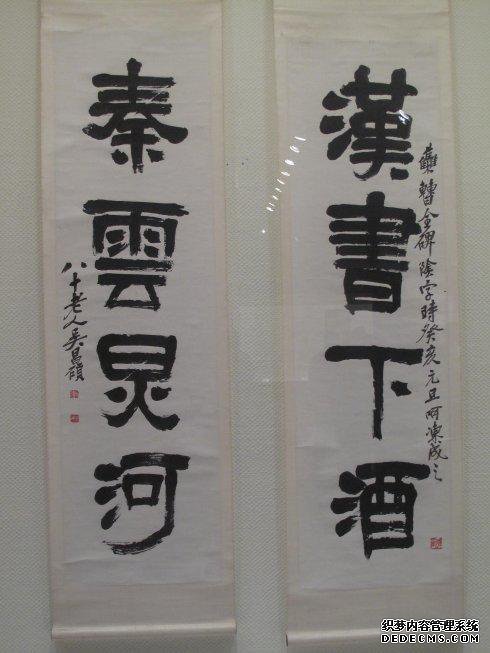 漢書下酒
雧曹全碑陰字時癸亥元旦呵凍成之
秦雲炅河
八十老人吳昌碩
织梦内容管理系统
DEDECMS.COM